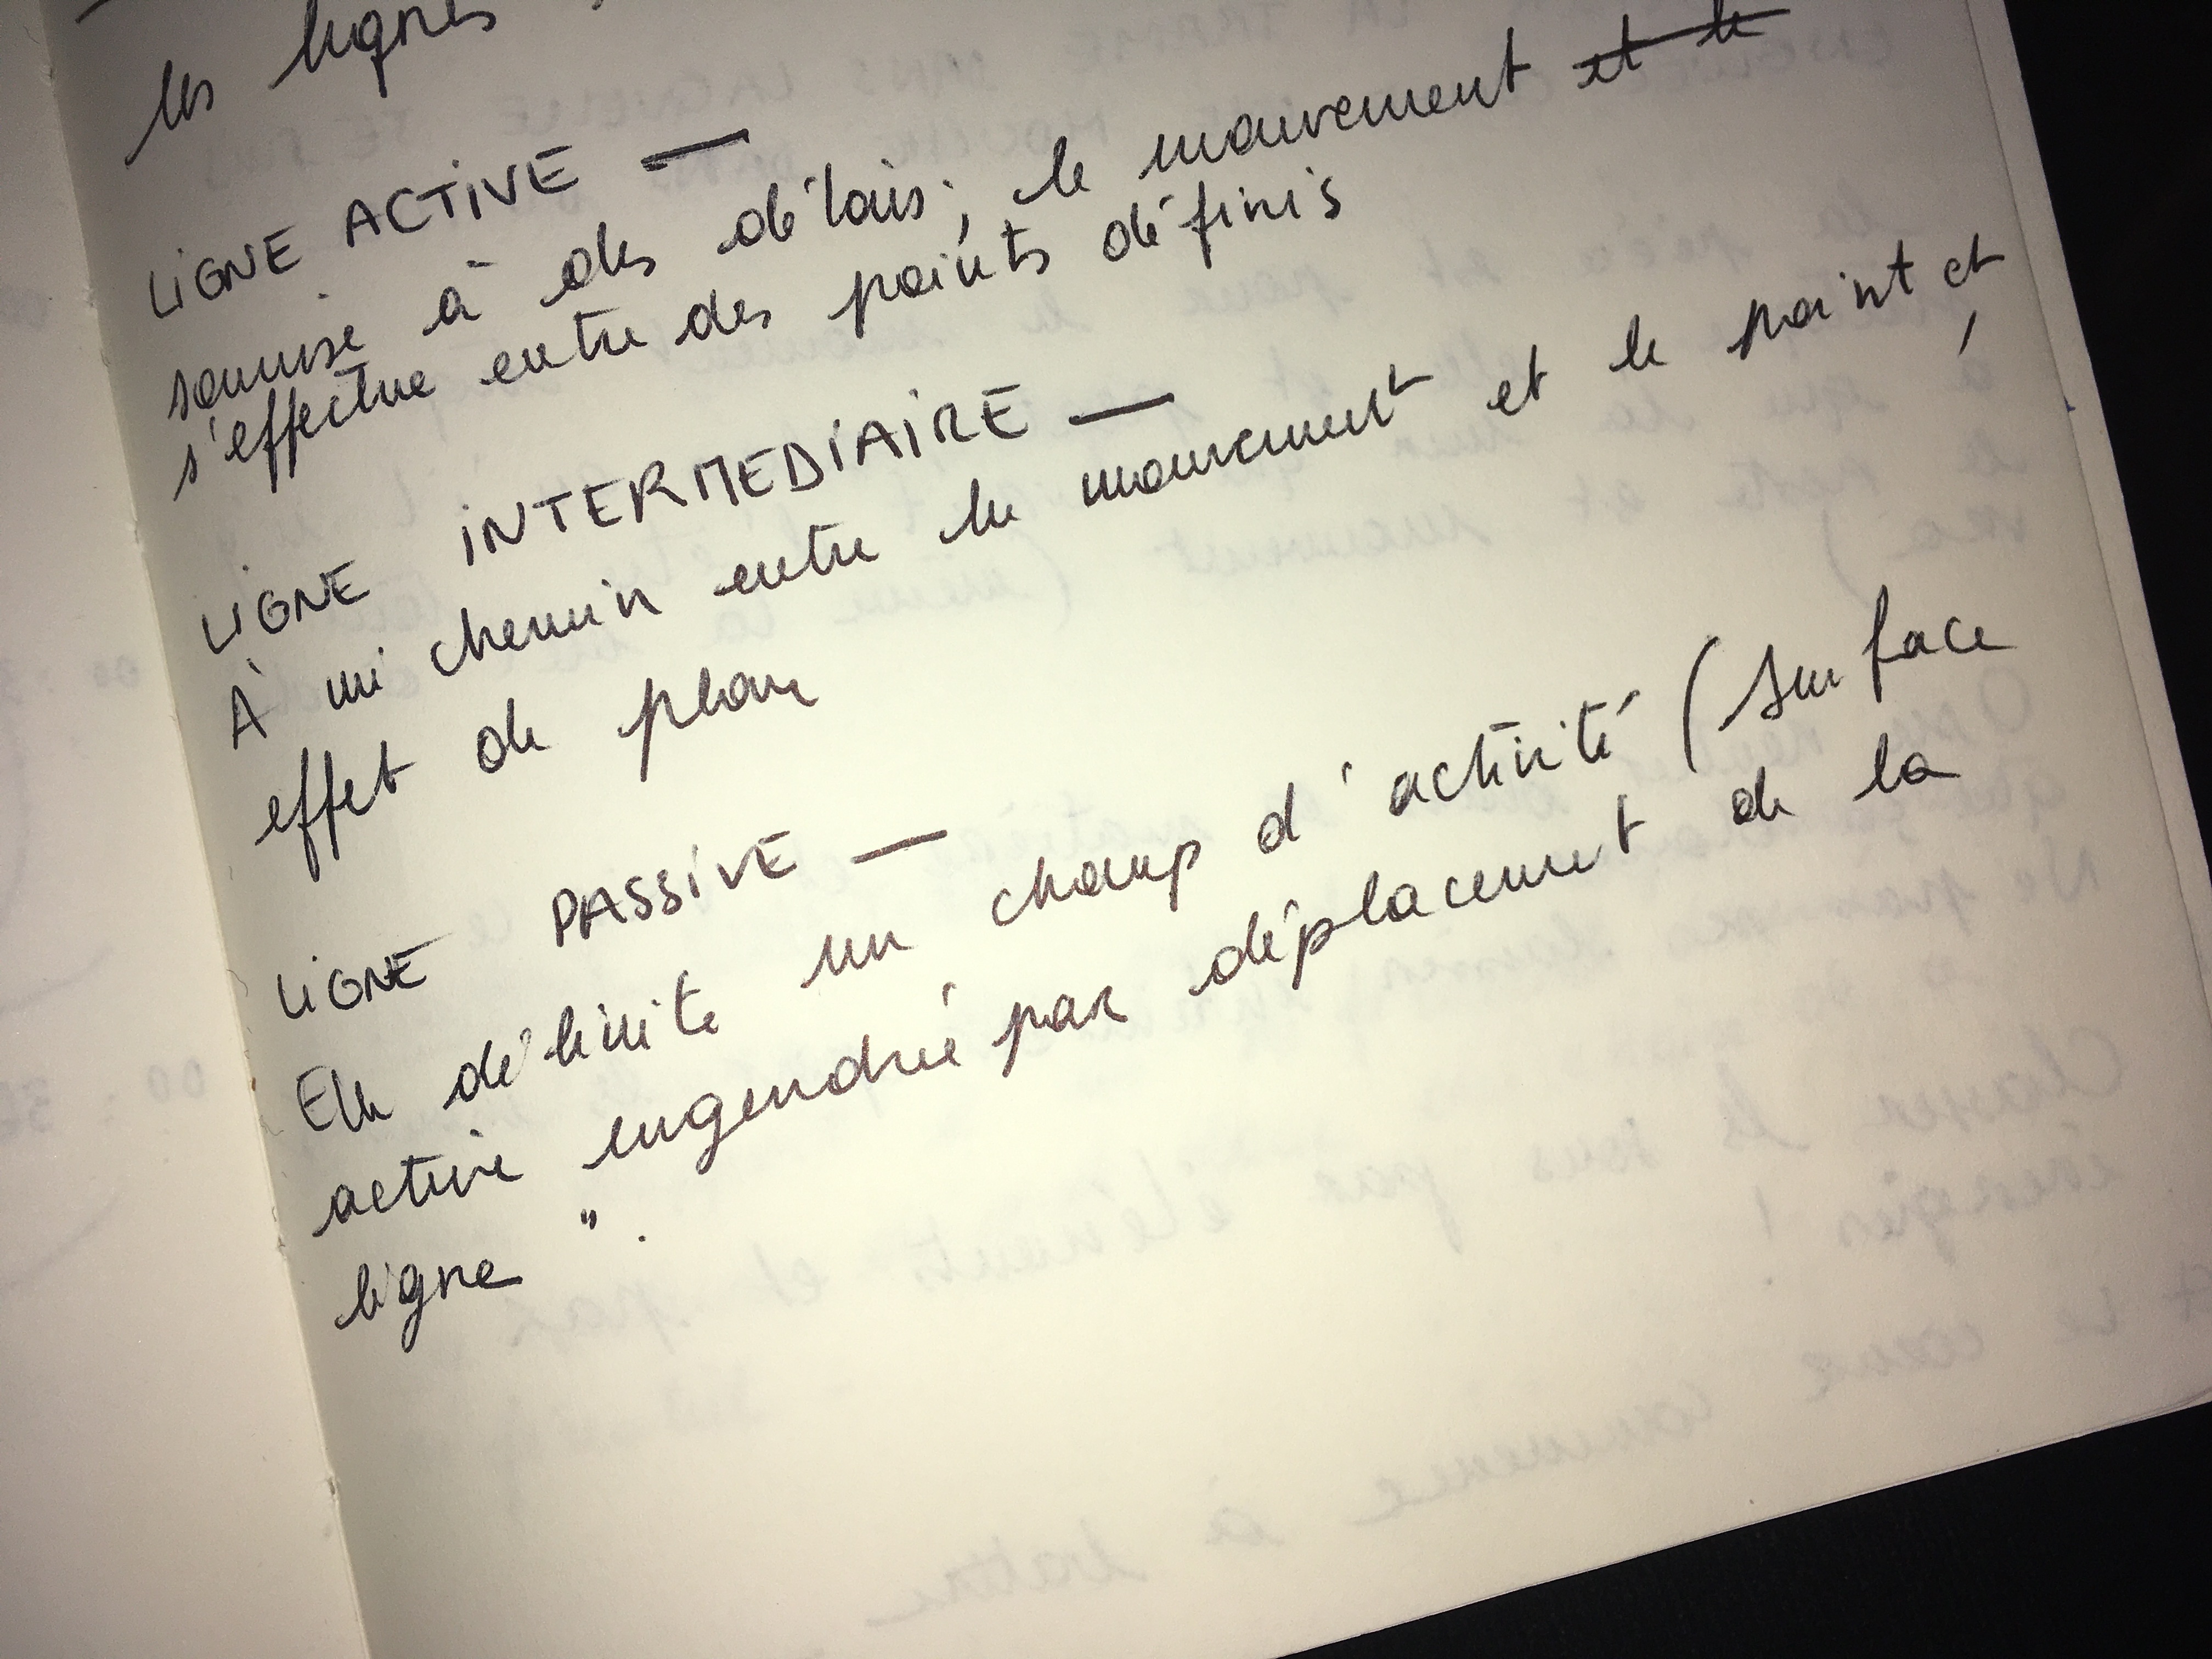 les lignes
LIGNE ACTIVE —
soumise à des délais ; le mouvement et le
s'effectue entre des points définis
LIGNE INTERMEDIAIRE —
À mi chemin entre le mouvement et le point et
effet de plan
LIGNE PASSIVE —
Elle délimite un champ d'activité (surface
active engendrée par déplacement de la
ligne ".